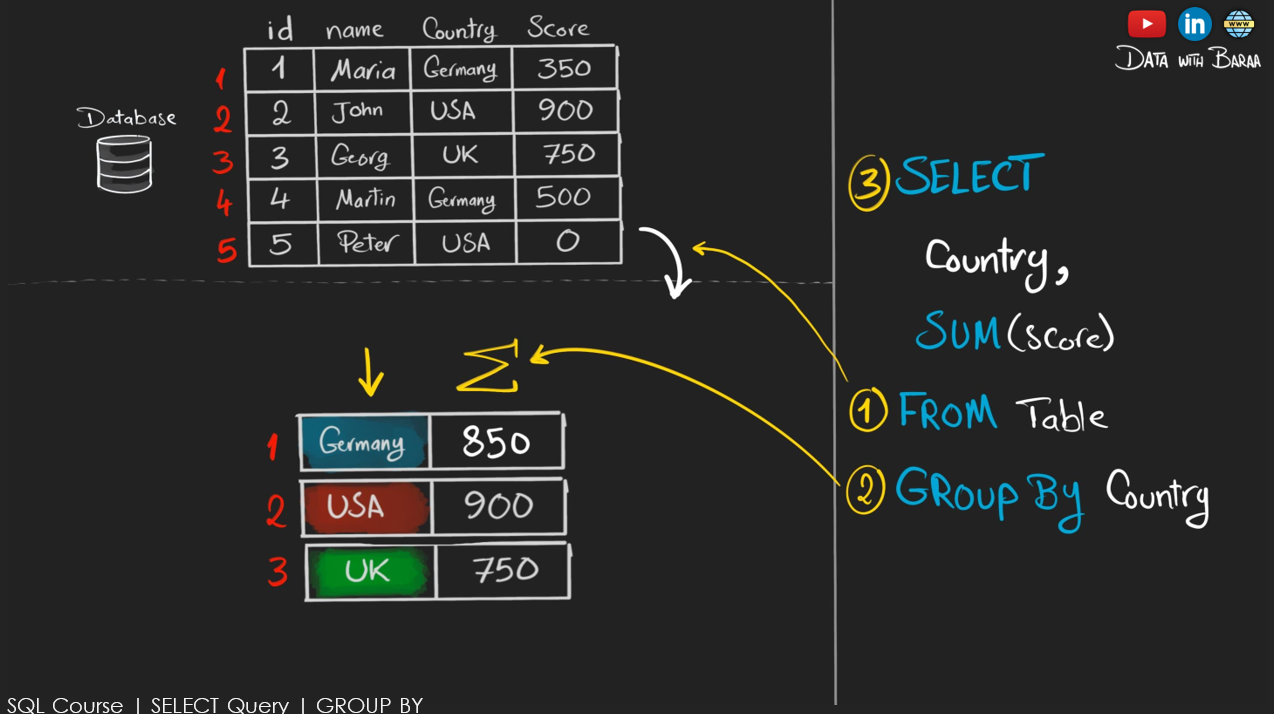 id name Country Score
1 1 Maria Germany 350
2 2 John USA 900
3 3 Georg UK 750
4 4 Martin Germany 500
5 5 Peter USA 0
Database
Σ
1 Germany 850
2 USA 900
3 UK 750
WWW
in
DATA WITH BARAA
3 SELECT
Country,
SUM(score)
1 FROM Table
2 GROUP BY Country
SQL Course | SELECT Query | GROUP BY